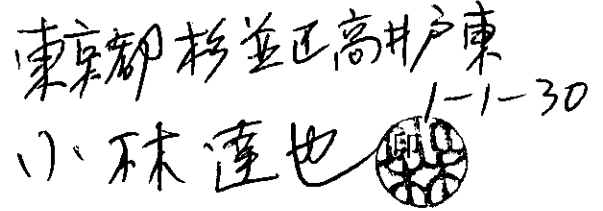 東京都杉並区高井戸東
1-1-30
小林達也